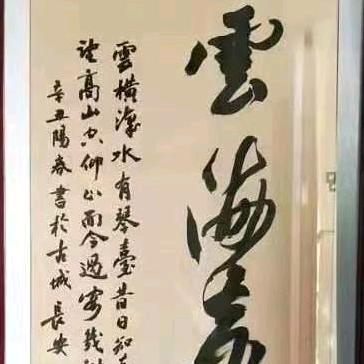 雲海
雲橫漢水有琴臺昔日知
望高山空仰止而今過客幾
辛丑陽春書於古城長安